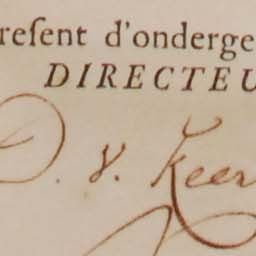 reſent d'onderge
DIRECTEU
D. v. Keer